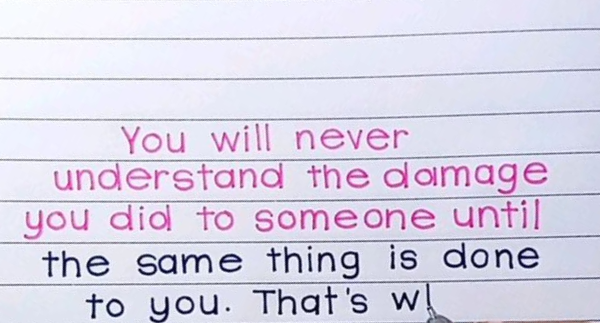 You will never
understand the damage
you did to someone until
the same thing is done
to you. That's w